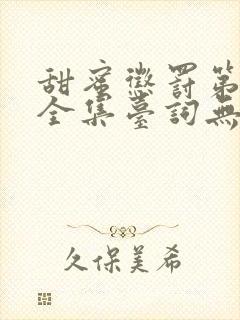 甜蜜懲罰第
全集臺詞無
久保美希